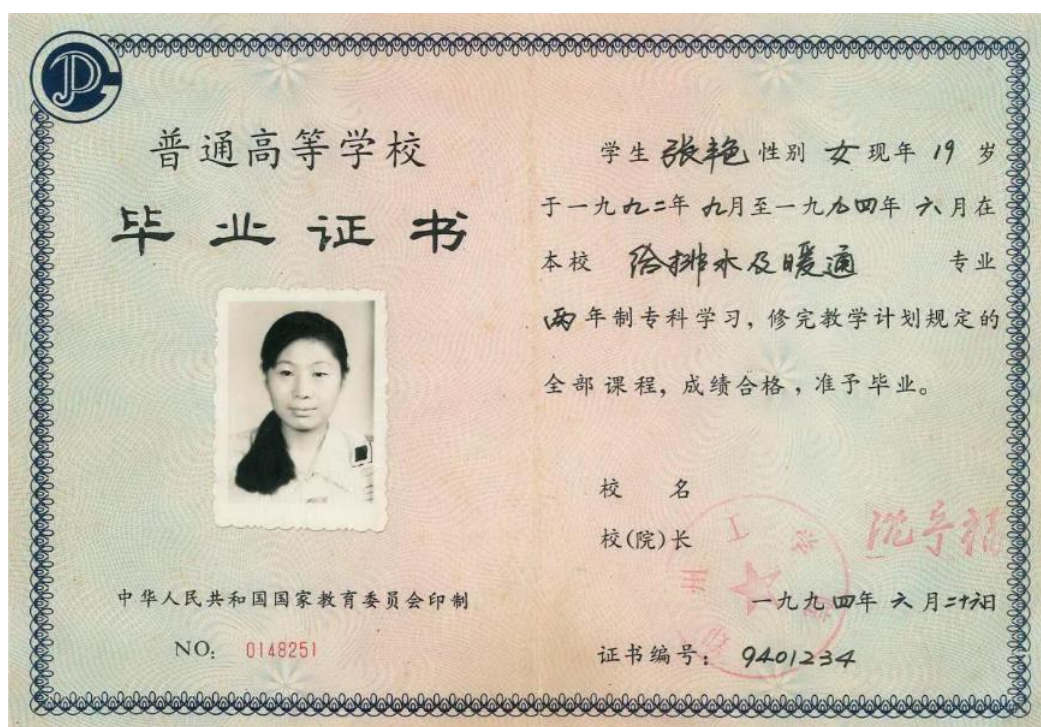 普通高等学校
毕业证书
中华人民共和国国家教育委员会印制
NO: 0148251
学生 张艳 性别 女 现年 19 岁
于一九九二年 九月至一九九四年 六月在
本校 给排水及暖通 专业
两年制专科学习，修完教学计划规定的
全部课程，成绩合格，准予毕业。
校 名
校(院)长
一九九四年 六月二十六日
证书编号： 9401234